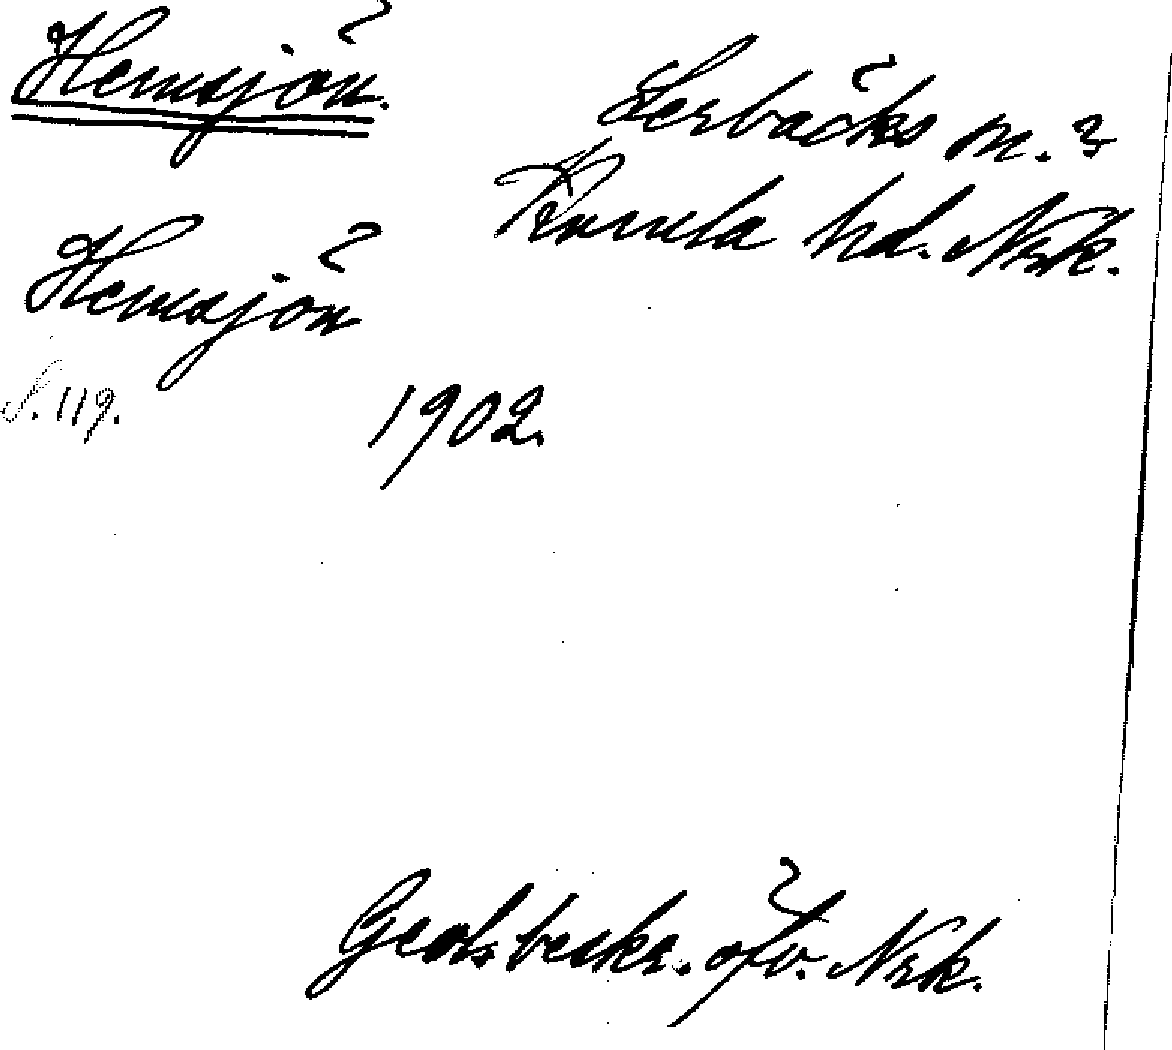 Hemsjön.
Lerbäcks sn. ?
Kumla hd. Nrk.
Hemsjön
S. 119.
1902.
Geol. beskr. öfv. Nrk.